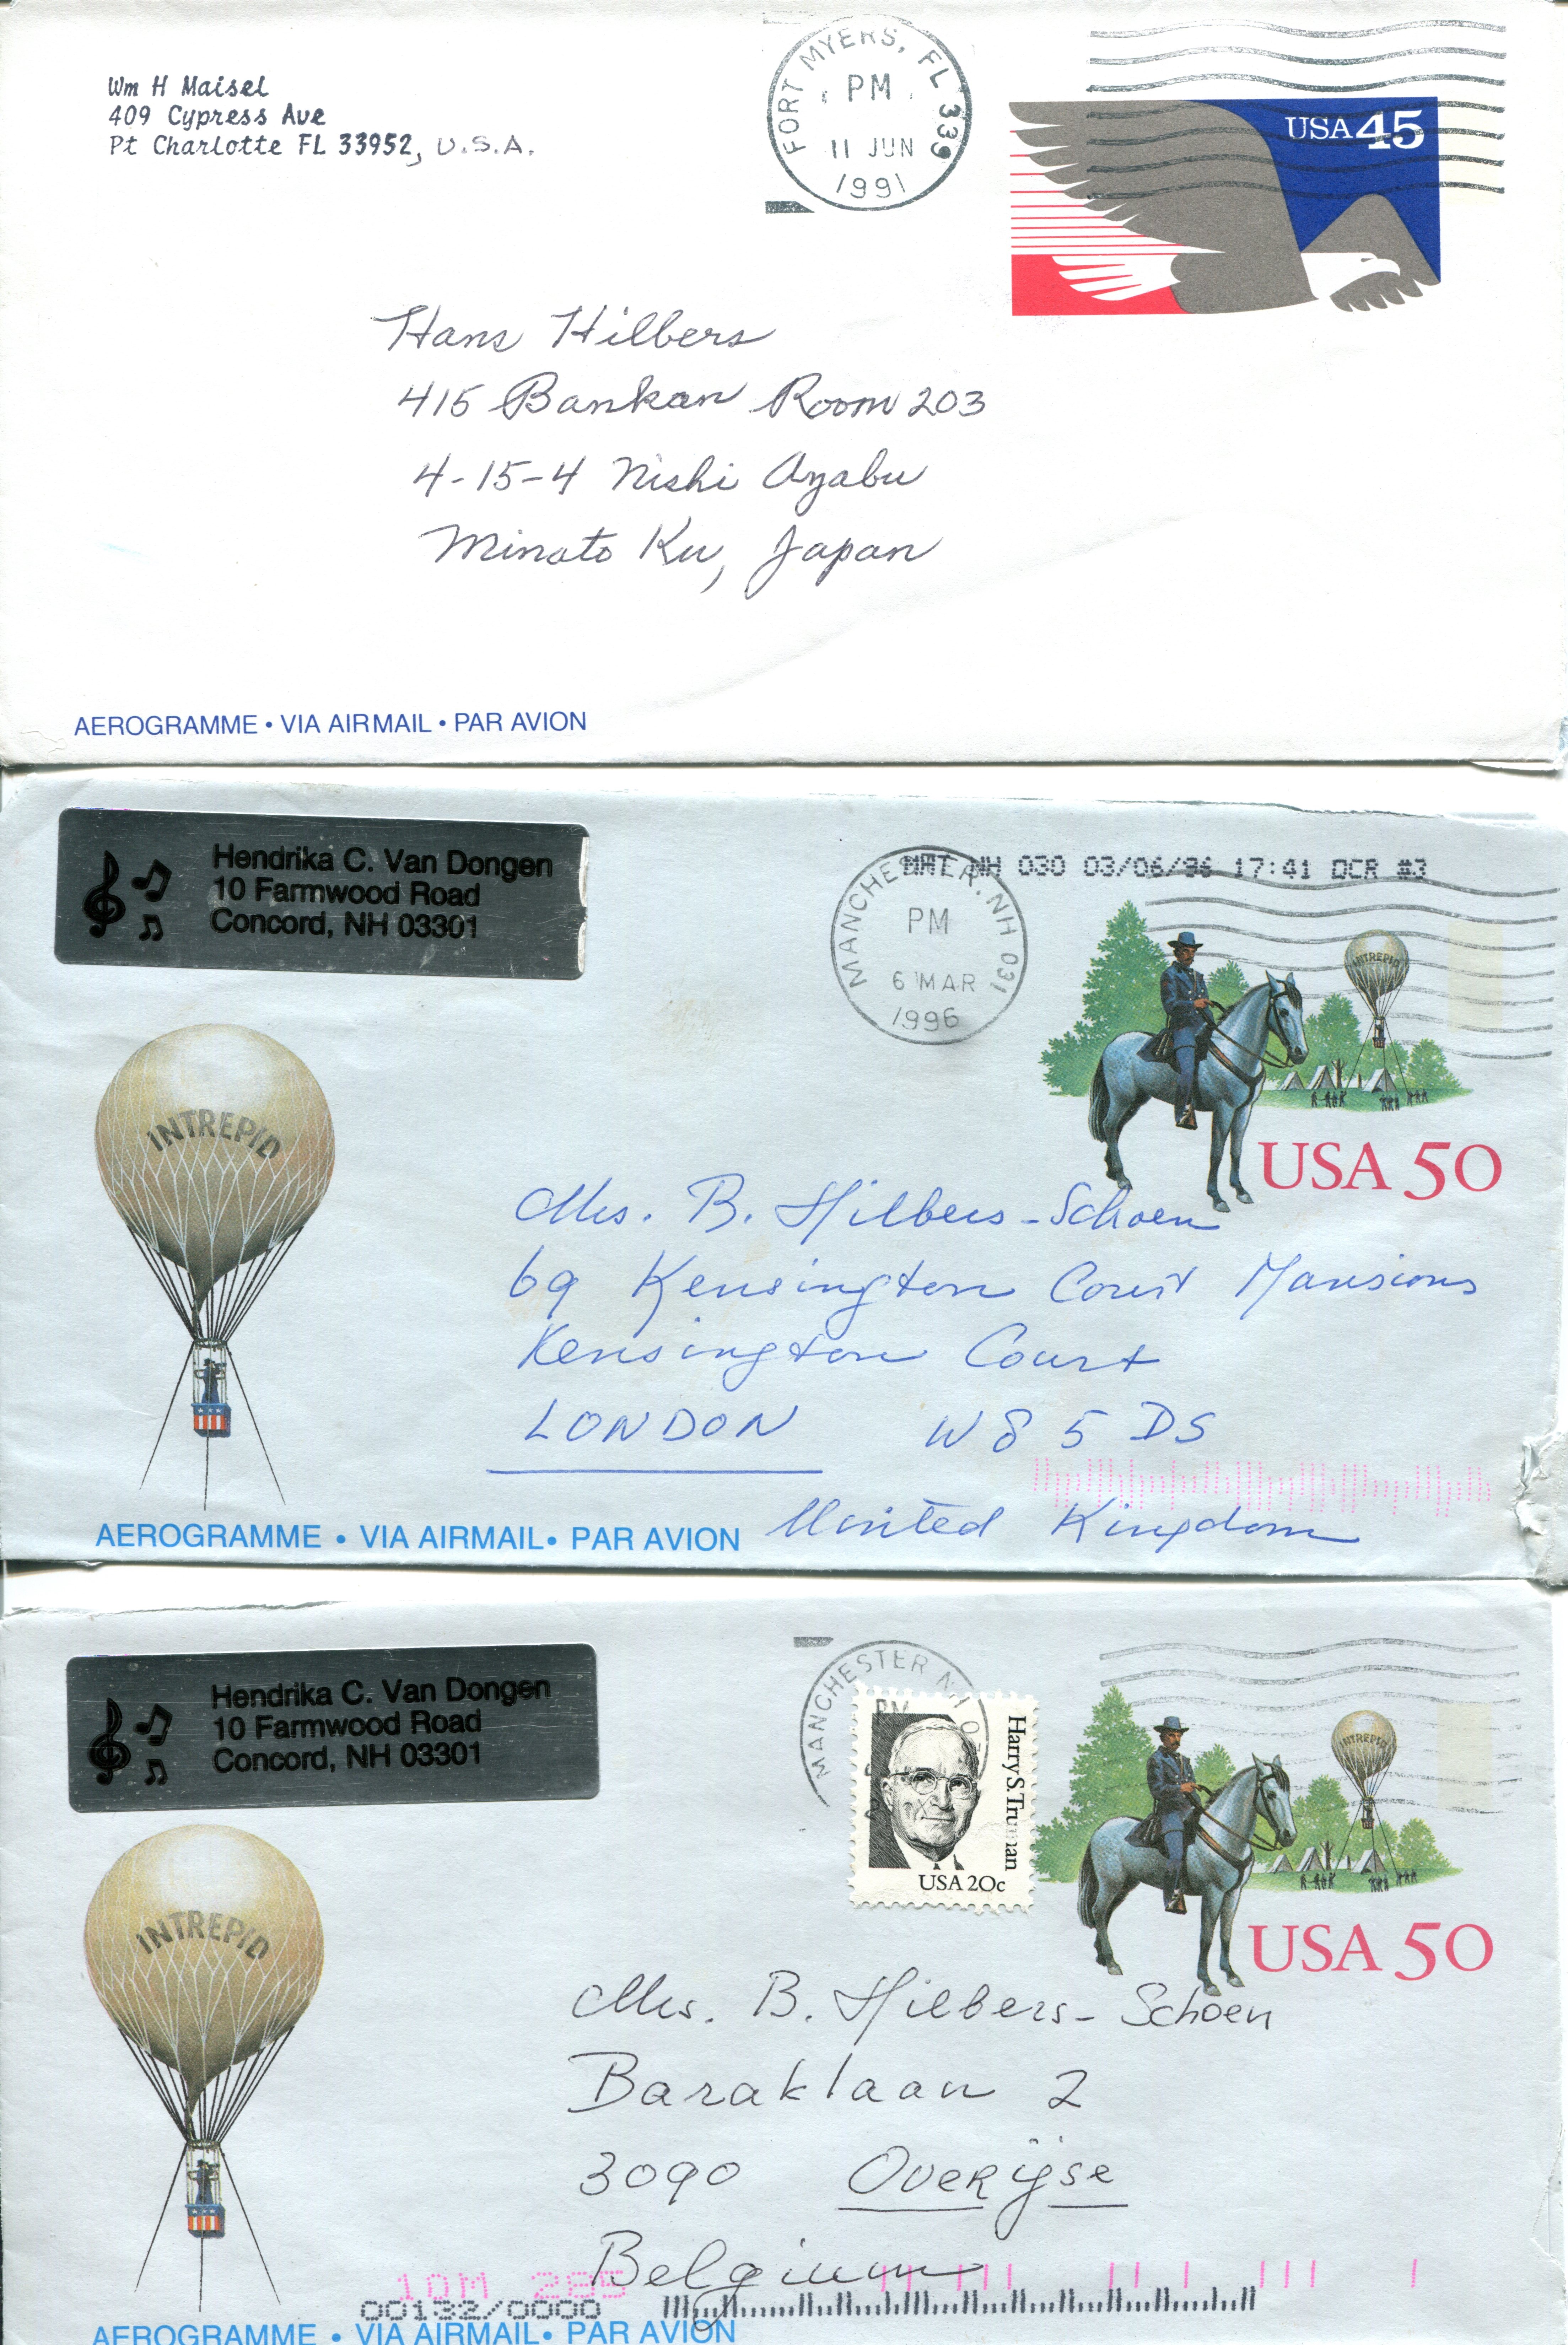 Wm H Maisel
409 Cypress Ave
Pt Charlotte FL 33952, U.S.A.
FORT MYERS, FL 339
PM
11 JUN
1991
USA 45
Hans Hilbers
415 Bankan Room 203
4-15-4 Nishi Azabu
Minato Ku, Japan
AEROGRAMME • VIA AIRMAIL • PAR AVION
Hendrika C. Van Dongen
10 Farmwood Road
Concord, NH 03301
MANCHESTER, NH 031
PM
6 MAR
1996
NH 030 03/06/96 17:41 OCR #3
INTREPID
INTREPID
USA 50
Mrs. B. Hilbers-Schoen
69 Kensington Court Mansions
Kensington Court
LONDON W8 5DS
United Kingdom
AEROGRAMME • VIA AIRMAIL • PAR AVION
Hendrika C. Van Dongen
10 Farmwood Road
Concord, NH 03301
MANCHESTER NH
PM
Harry S. Truman
USA 20c
INTREPID
INTREPID
USA 50
Mrs. B. Hilbers-Schoen
Baraklaan 2
3090 Overijse
Belgium
10M 285
00132/0000
AEROGRAMME • VIA AIRMAIL • PAR AVION